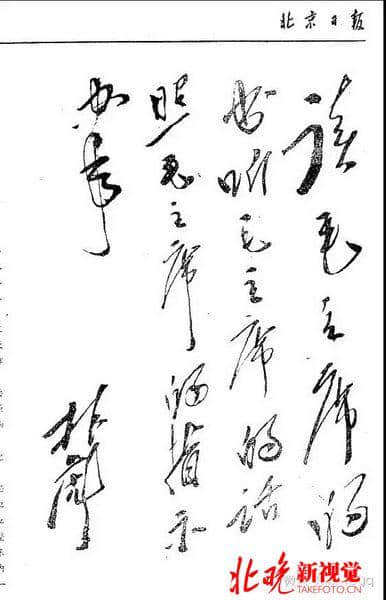 北京日报
读毛主席的
书听毛主席的话
照毛主席的指示
办事
林彪
北晚新视觉
TAKEFOTO.CN